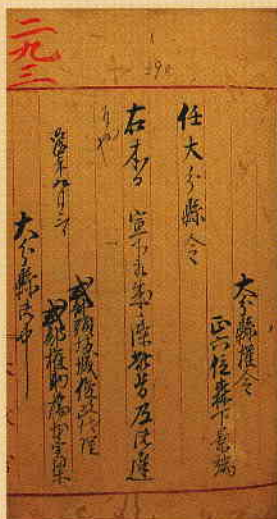 二九三
大分縣權令
正六位森下景端
任大分縣令
右本日 宣下相成候條此旨及御達
候也
九月三日
式部頭坊城俊政代理
式部權助橋本實梁
大分縣御中